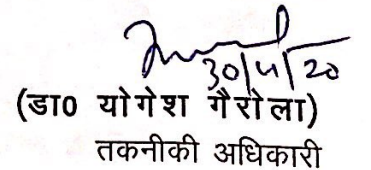 30/4/20
(डा0 योगेश गैरोला)
तकनीकी अधिकारी